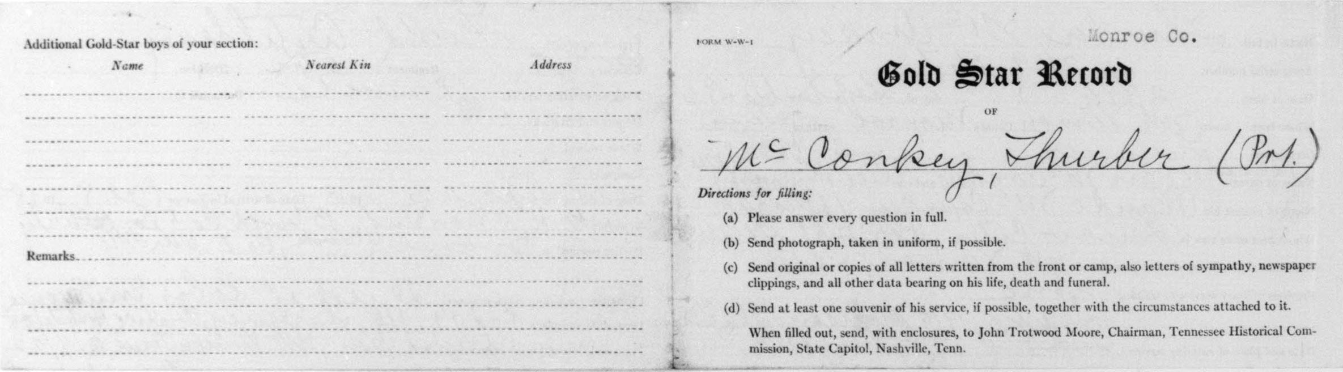 Additional Gold-Star boys of your section:
Name Nearest Kin Address
Remarks
FORM W-W-1
Monroe Co.
Gold Star Record
OF
Mc Conkey, Thurber (Pvt.)
Directions for filling:
(a) Please answer every question in full.
(b) Send photograph, taken in uniform, if possible.
(c) Send original or copies of all letters written from the front or camp, also letters of sympathy, newspaper
clippings, and all other data bearing on his life, death and funeral.
(d) Send at least one souvenir of his service, if possible, together with the circumstances attached to it.
When filled out, send, with enclosures, to John Trotwood Moore, Chairman, Tennessee Historical Com-
mission, State Capitol, Nashville, Tenn.